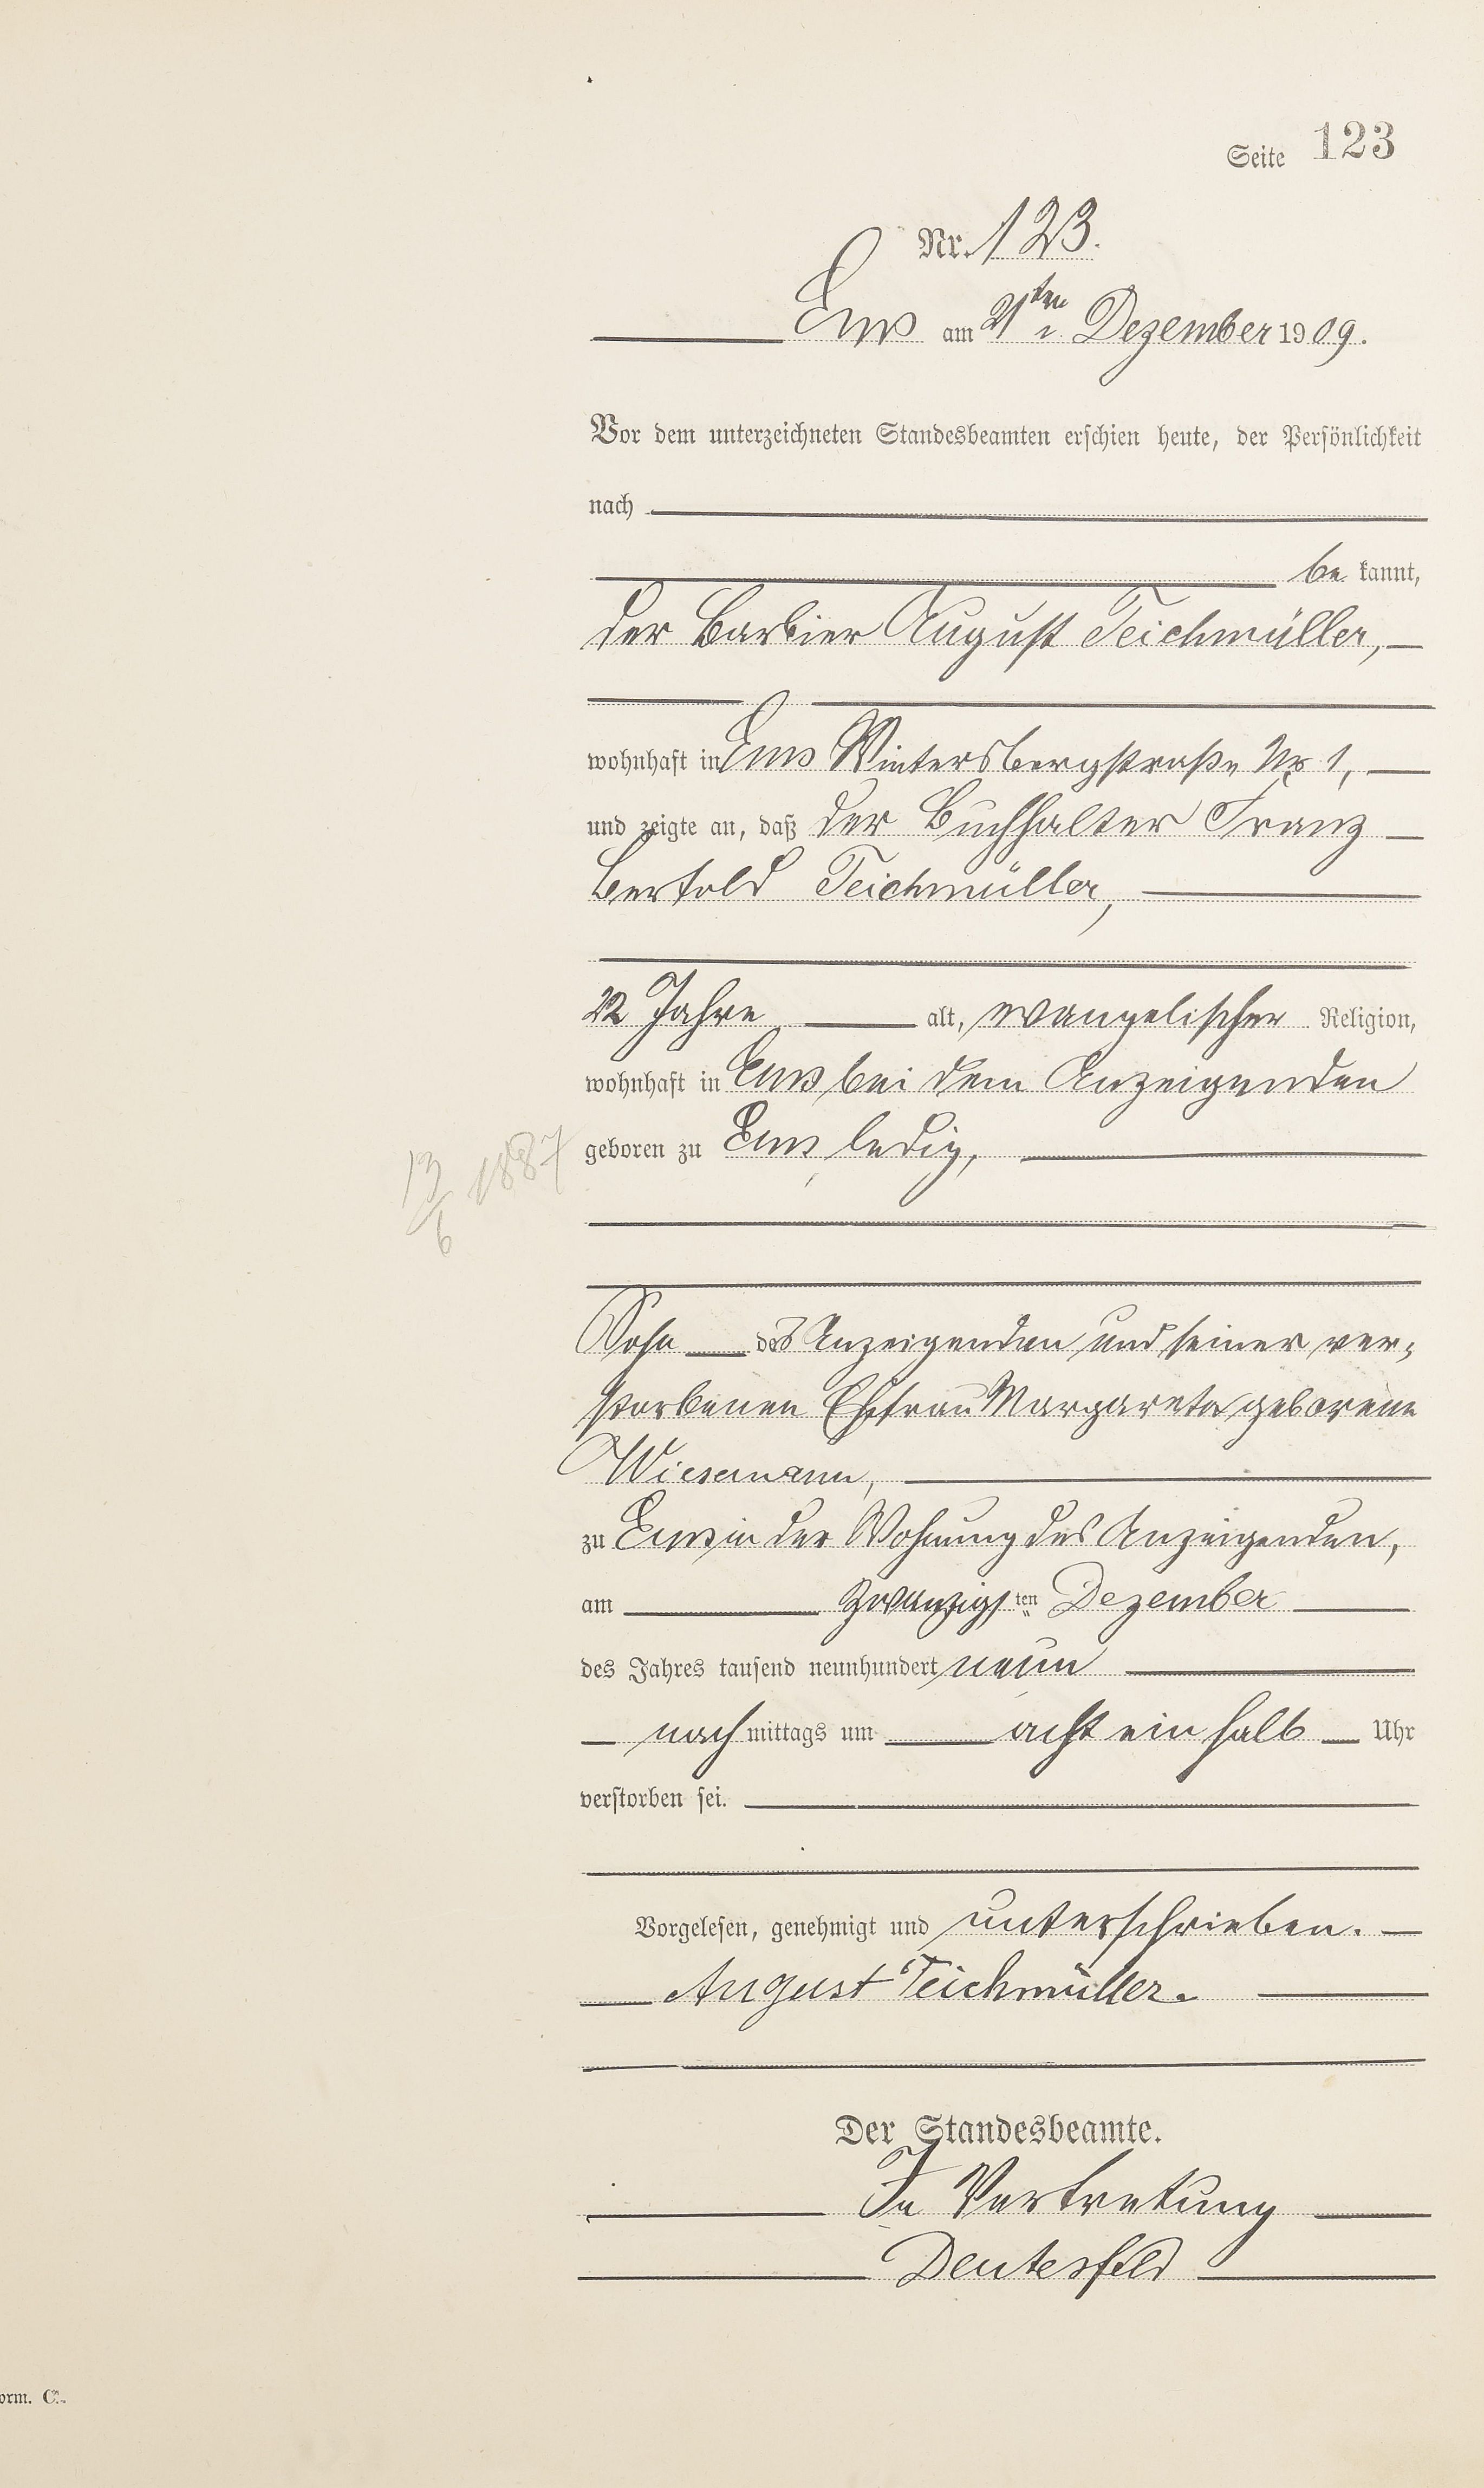 Seite 123
Nr. 123.
Ems am 21ten Dezember 1909.
Vor dem unterzeichneten Standesbeamten erschien heute, der Persönlichkeit
nach
be kannt,
der Barbier August Teichmüller,
wohnhaft in Ems Wintersbergstraße Nr 1,
und zeigte an, daß der Buchhalter Franz
Bertold Teichmüller,
22 Jahre alt, evangelischer Religion,
wohnhaft in Ems bei dem Anzeigenden
geboren zu Ems, ledig,
13/6 1887
Sohn des Anzeigenden und seiner ver-
storbenen Ehefrau Margareta geborene
Wiesemann,
zu Ems in der Wohnung des Anzeigenden,
am zwanzigsten Dezember
des Jahres tausend neunhundert neun
nach mittags um acht ein halb Uhr
verstorben sei.
Vorgelesen, genehmigt und unterschrieben.
August Teichmüller.
Der Standesbeamte.
In Vertretung
Deutesfeld
orm. C.